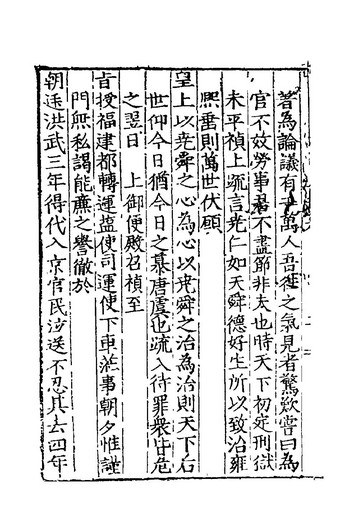 著為論議有千萬人吾徃之氣見者驚歎嘗曰為
官不效勞事君不盡節非夫也時天下初定刑獄
未平禎上疏言尭仁如天舜德好生所以致治雍
熈垂則萬世伏願
皇上以尭舜之心為心以尭舜之治為治則天下右
世仰今日猶今日之慕唐虞也疏入待罪衆皆危
之翌日 上御便殿召禎至
旨授福建都轉運盐使司運使下車莅事朝夕惟謹
門無私謁能亷之譽徹於
朝廷洪武三年得代入京官民涉送不忍其去四年